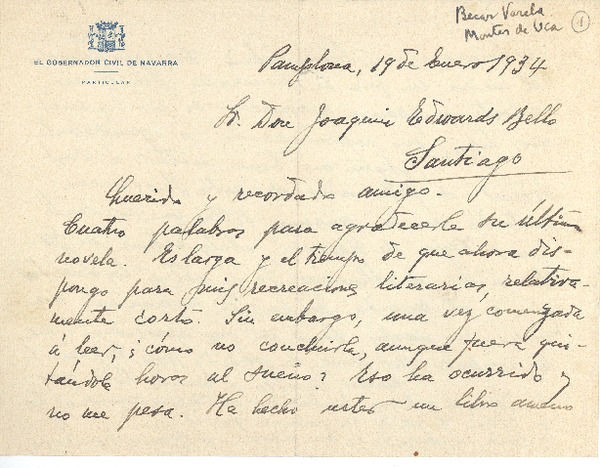 Becar Varela
Montes de Oca
1
EL GOBERNADOR CIVIL DE NAVARRA
PARTICULAR
Pamplona, 19 de Enero 1934
Sr. Don Joaquin Edwards Bello
Santiago
Querido y recordado amigo.
Cuatro palabras para agradecerle su última
novela. Es larga y el tiempo de que ahora dis-
pongo para mis recreaciones literarias, relativa-
mente corto. Sin embargo, una vez comenzada
á leer, ¿cómo no concluirla, aunque fuera qui-
tándole horas al sueño? Eso ha ocurrido y
no me pesa. Ha hecho usted un libro ameno